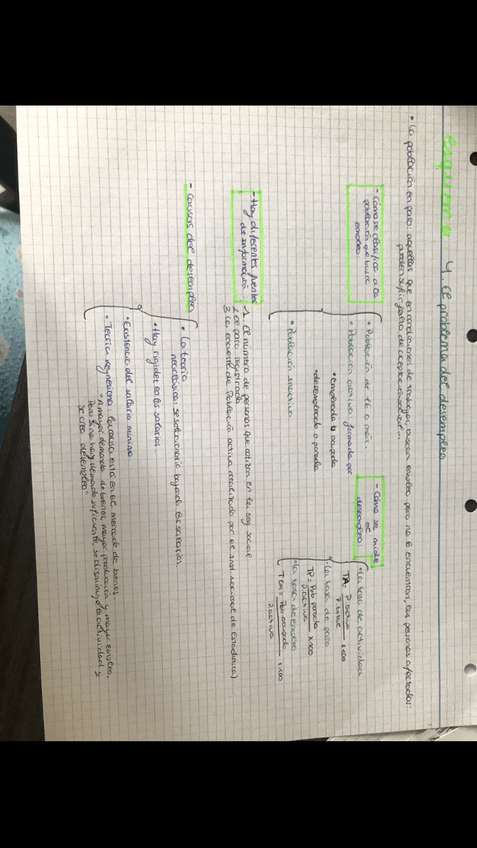 esquema 4. El problema del desempleo
• La población en paro: aquellos que en condiciones de trabajar, buscan empleo pero no lo encuentran, las personas afectadas:
pueden sufrir
- Cómo se clasifica a la
población que busca
empleo
• Población de 16 o más.
• Población activa: formada por
• empleada u ocupada
• desempleada o parada
• Población inactiva
- Cómo se mide
el
desempleo
• La tasa de actividad
TA = P. activa x100
• La tasa de paro
TP = Pob parada x100
P. activa
• La tasa de empleo
TEM = Pob. ocupada x100
P. activa
- Hay diferentes fuentes
de información:
1. El número de personas que cotizan en la seg. social
2. El paro registrado
3. La encuesta de Población activa realizada por el INE (Instituto Nacional de Estadística)
- Causas del desempleo
• La teoría
neoclásica: se solucionaría bajando los salarios.
• Hay rigidez en los salarios
• Existencia del salario mínimo
• Teoría keynesiana: la causa está en el mercado de bienes.
"A mayor demanda de bienes, mayor producción y mayor empleo,
Pero si no hay demanda suficiente, se disminuye la actividad y
se crea desempleo"